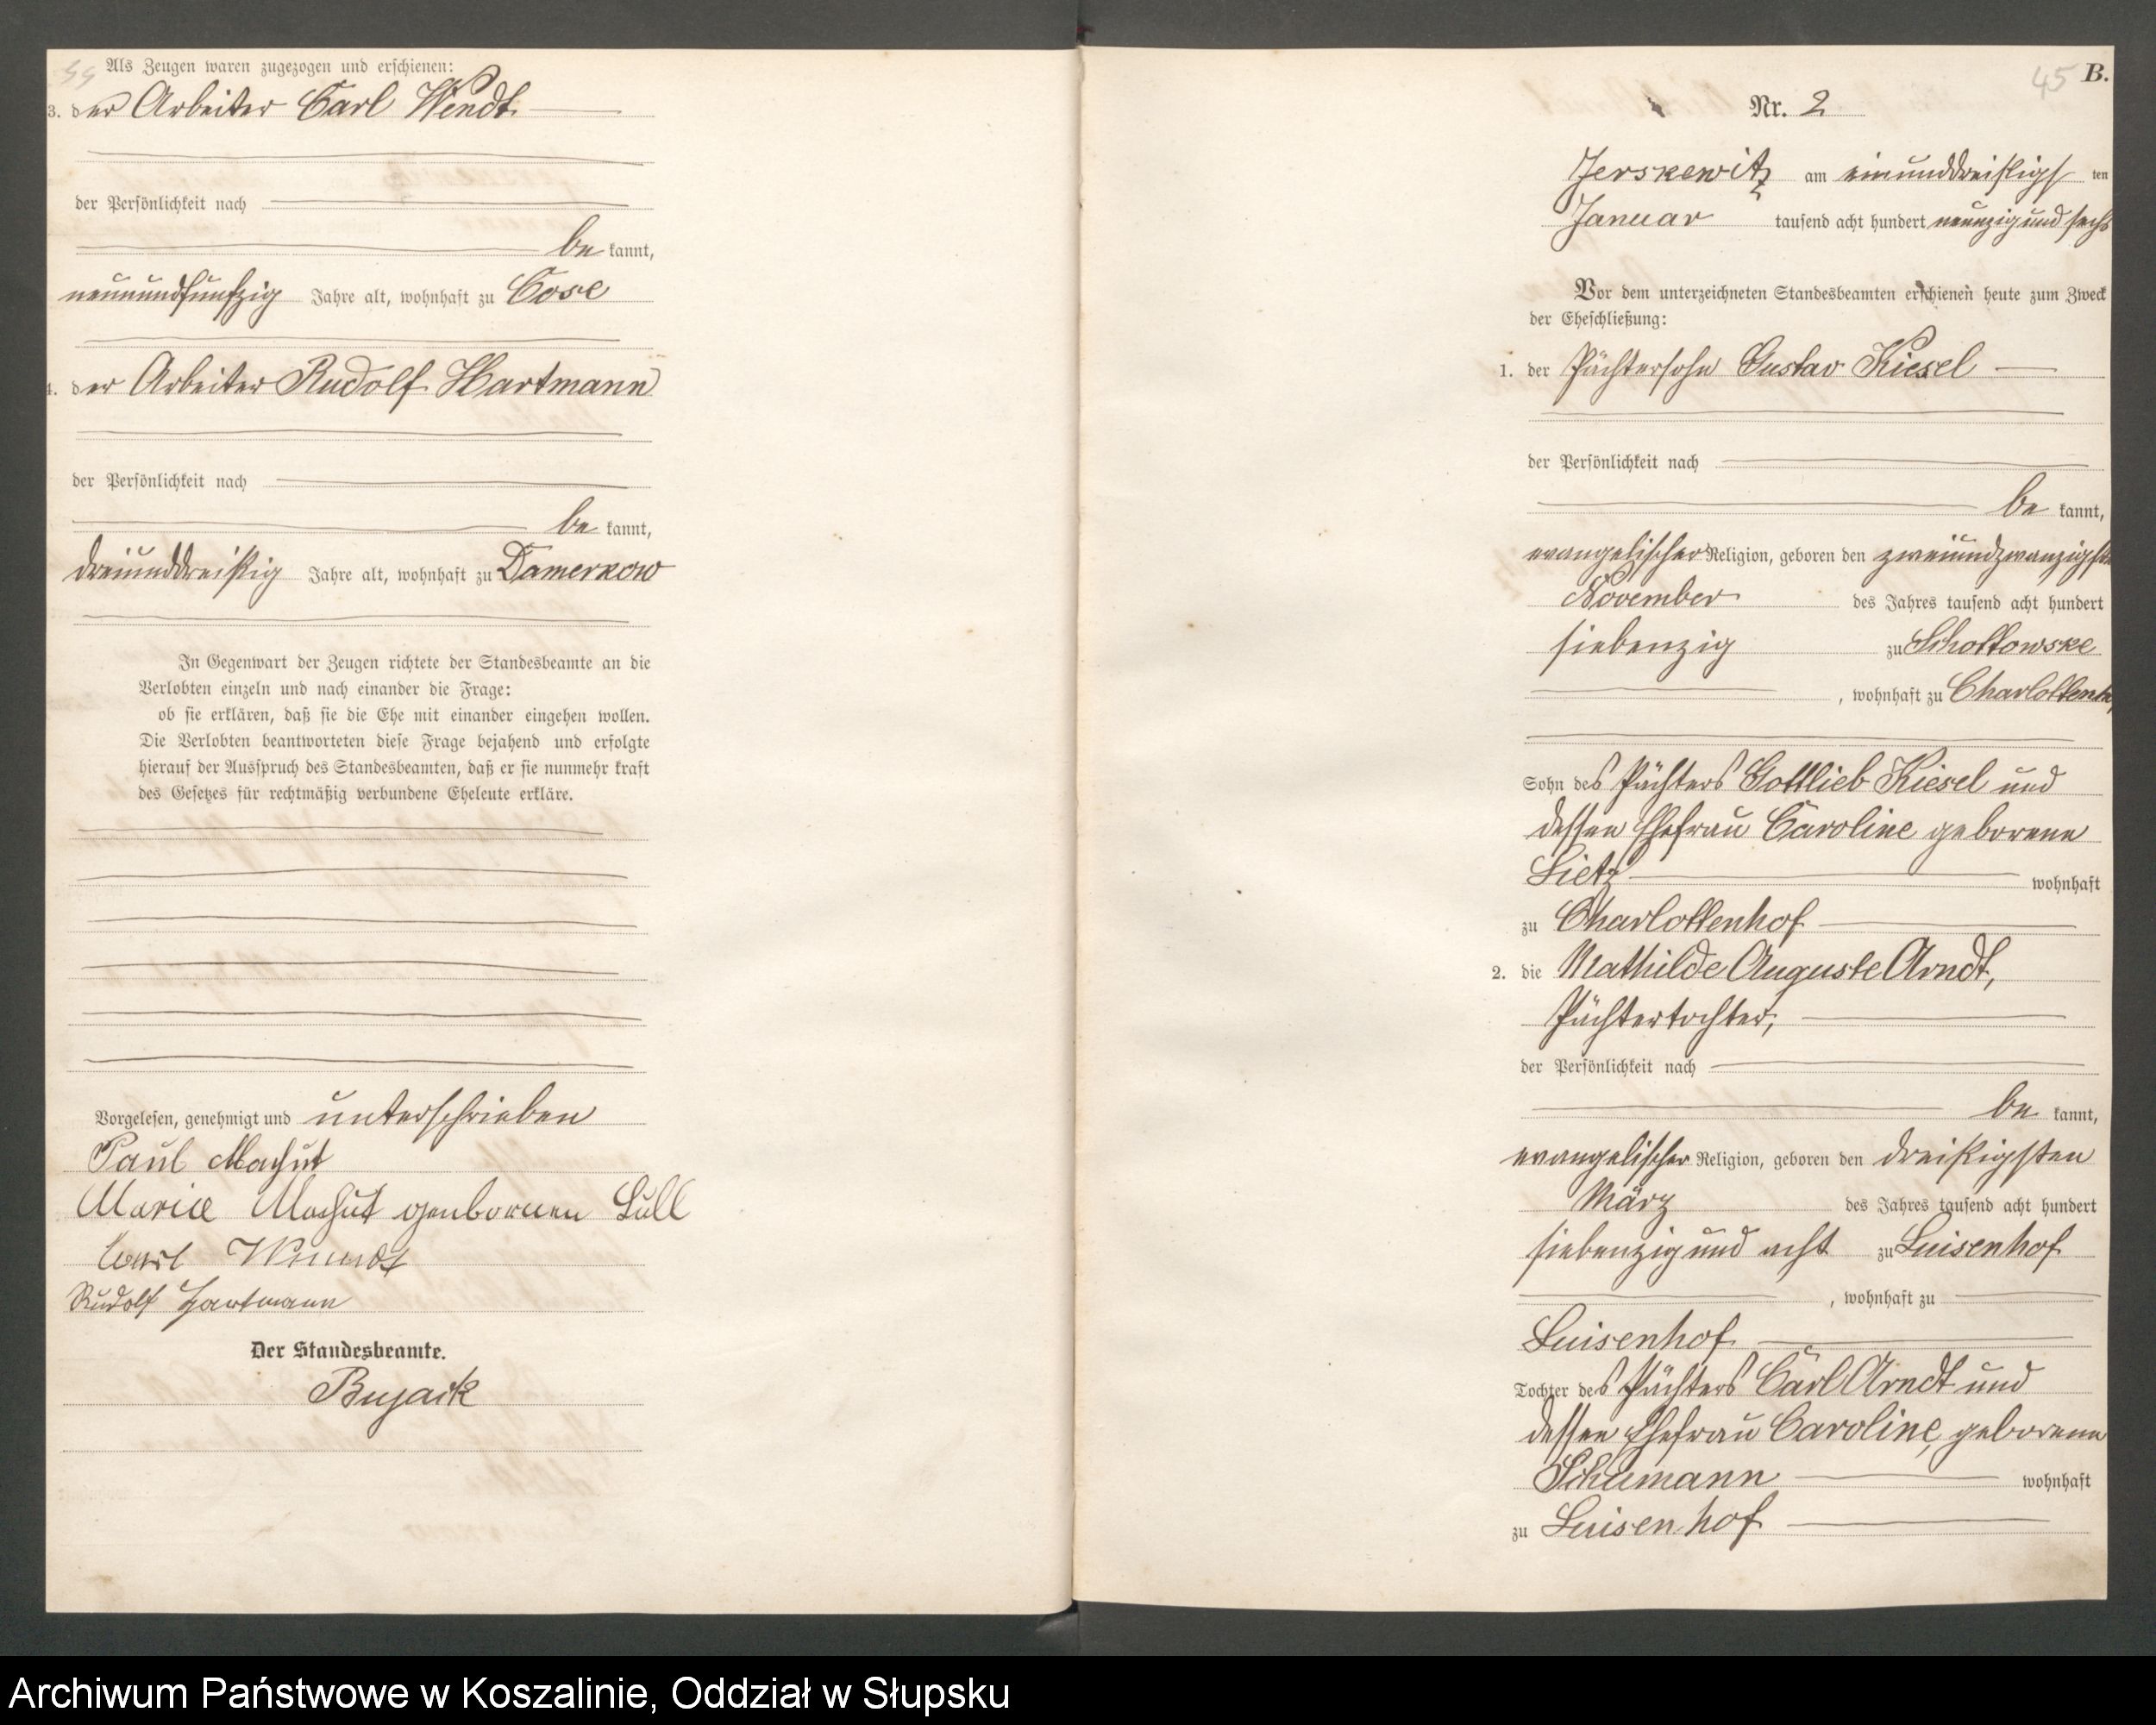 44
Als Zeugen waren zugezogen und erschienen:
3. der Arbeiter Carl Wendt
der Persönlichkeit nach
be kannt,
neunundfünfzig Jahre alt, wohnhaft zu Cose
4. der Arbeiter Rudolf Hartmann
der Persönlichkeit nach
be kannt,
dreiunddreißig Jahre alt, wohnhaft zu Damerkow
In Gegenwart der Zeugen richtete der Standesbeamte an die
Verlobten einzeln und nach einander die Frage:
ob sie erklären, daß sie die Ehe mit einander eingehen wollen.
Die Verlobten beantworteten diese Frage bejahend und erfolgte
hierauf der Ausspruch des Standesbeamten, daß er sie nunmehr kraft
des Gesetzes für rechtmäßig verbundene Eheleute erkläre.
Vorgelesen, genehmigt und unterschrieben
Paul Machut
Marie Machut genbornen Lüll
Carl Wendt
Rudolf Hartmann
Der Standesbeamte.
Bujack
45 B.
Nr. 2
Jerskewitz am einunddreißigs ten
Januar tausend acht hundert neunzig und sechs
Vor dem unterzeichneten Standesbeamten erschienen heute zum Zweck
der Eheschließung:
1. der Pächtersohn Gustav Kiesel
der Persönlichkeit nach
be kannt,
evangelischer Religion, geboren den zweiundzwanzigsten
November des Jahres tausend acht hundert
siebenzig zu Schottowske
, wohnhaft zu Charlottenh
Sohn des Pächters Gottlieb Kiesel und
dessen Ehefrau Caroline geborene
Lietz wohnhaft
zu Charlottenhof
2. die Mathilde Auguste Arndt,
Pächtertochter,
der Persönlichkeit nach
be kannt,
evangelischer Religion, geboren den dreißigsten
März des Jahres tausend acht hundert
siebenzig und acht zu Luisenhof
, wohnhaft zu
Luisenhof
Tochter des Pächters Carl Arndt und
dessen Ehefrau Caroline, geborene
Schumann wohnhaft
zu Luisenhof
Archiwum Państwowe w Koszalinie, Oddział w Słupsku